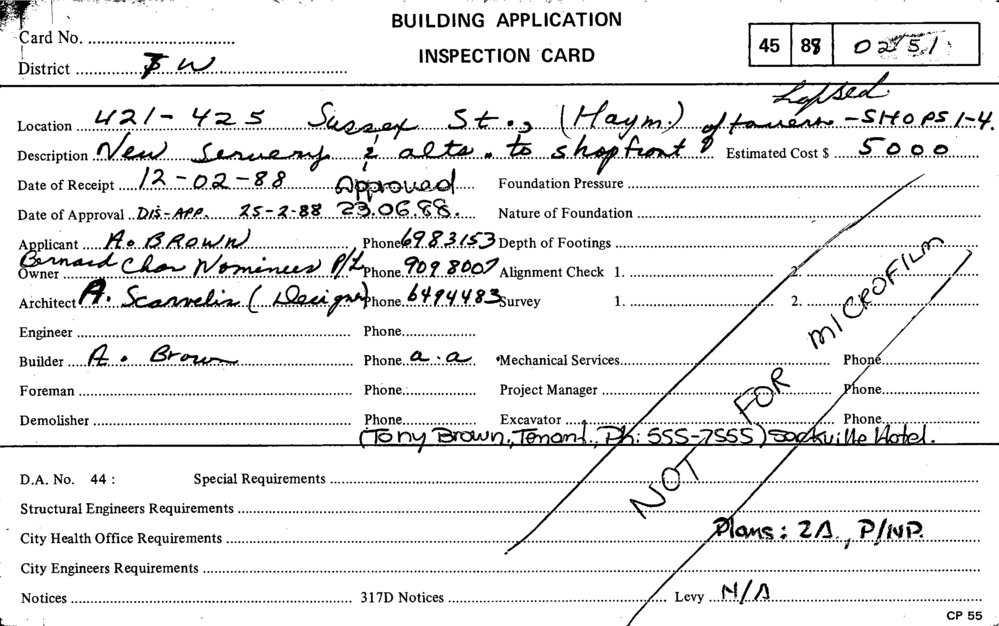 BUILDING APPLICATION
INSPECTION CARD
Card No.
District W
45 88 0251
Lapsed
Location 421-425 Sussex St., (Haym.) of tavern - SHOPS 1-4.
Description New servery & alts. to shopfront Estimated Cost $ 5000
Date of Receipt 12-02-88 Approved Foundation Pressure
Date of Approval DIS-APP. 25-2-88 23.06.88. Nature of Foundation
Applicant A. BROWN Phone 6983153 Depth of Footings
Owner Bernard Chan Nominees P/L Phone 909 8007 Alignment Check 1. 2.
Architect A. Scarvelis (Designer) Phone 6494483 Survey 1. 2.
Engineer Phone
Builder A. Brown Phone a.a Mechanical Services Phone
Foreman Phone Project Manager Phone
Demolisher Phone Excavator Phone
(Tony Brown, Tenant, Ph: 555-7555) Sackville Hotel.
NOT FOR MICROFILM
D.A. No. 44 : Special Requirements
Structural Engineers Requirements
City Health Office Requirements Plans: 2A, P/NP.
City Engineers Requirements
Notices 317D Notices Levy N/A
CP 55